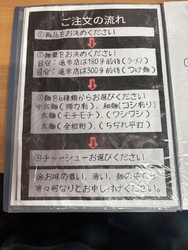 ご注文の流れ
①商品をお決めください
②麺量をお決めください
目安：通常店は180g前後(ラーメン)
目安：通常店は300g前後(つけ麺)
③麺を6種類からお選びください
中太麺(
細麺(コシ有り)
太麺(モチモチ)
(ワシワシ)
太麺(全粒粉)
(ちぢれ平打)
④チャーシューお選びください
お味の濃い、薄い、麺の
何なりとお申し付けください。